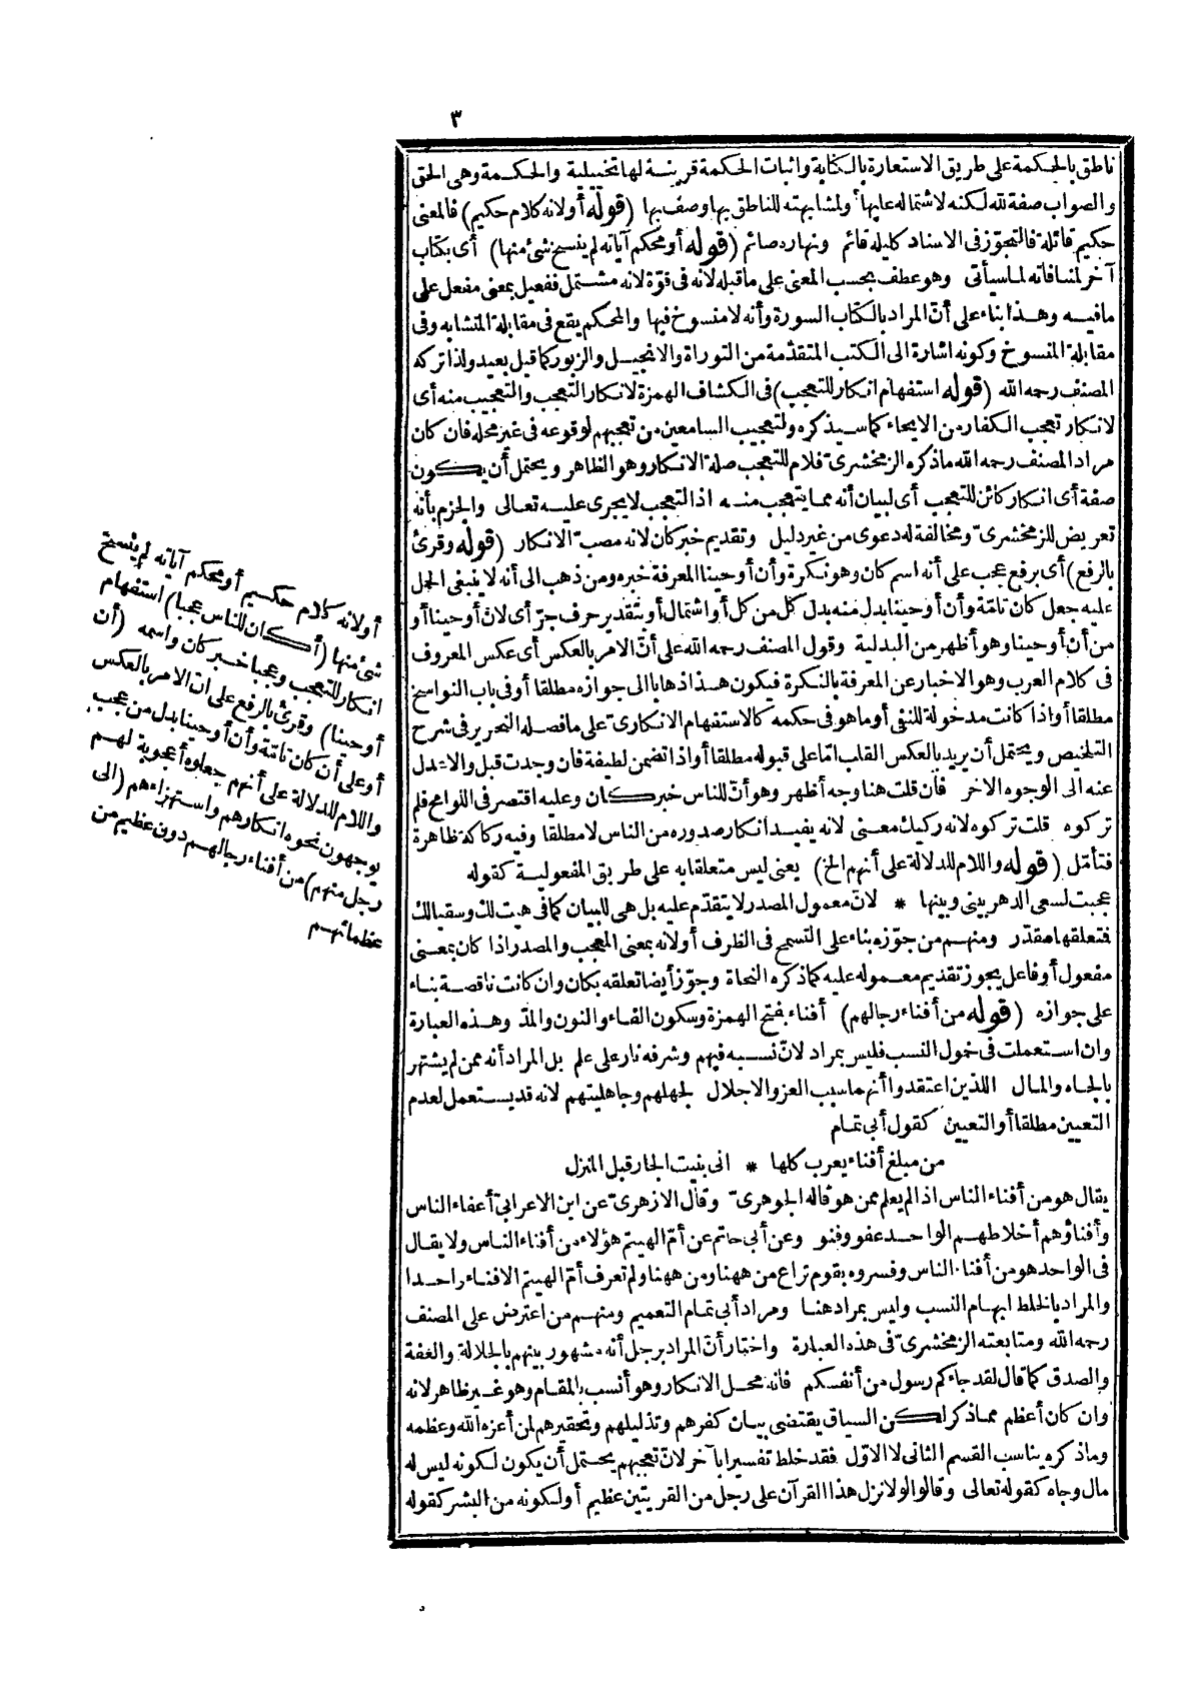 ٣
ناطق بالحكمة على طريق الاستعارة بالكناية واثبات الحكمة قرينة لها تخييلية والحكمة وهى الحق
والصواب صفة لله لكنه لاشتماله عليها ولمشابهته للناطق بها وصف بها (قوله أولانه كلام حكيم) فالمعنى
حكيم قائله فالتجوّز فى الاسناد كليله قائم ونهاره صائم (قوله أو محكم آياته لم ينسخ شئ منها) أى بكتاب
آخر لمنافاته لماسيأتى وهو عطف بحسب المعنى على ماقبله لانه فى قوّة لانه مشتمل ففعيل بمعنى مفعل على
مافيه وهذا بناء على أنّ المراد بالكتاب السورة وأنه لا منسوخ فيها والمحكم يقع فى مقابلة المتشابه وفى
مقابلة المنسوخ وكونه اشارة الى الكتب المتقدّمة من التوراة والانجيل والزبور كما قيل بعيد ولذا تركه
المصنف رحمه الله (قوله استفهام انكار للتعجب) فى الكشاف الهمزة لانكار التعجب والتعجيب منه أى
لانكار تعجب الكفار من الايحاء كما سيذكره ولتعجيب السامعين من تعجبهم لوقوعه فى غير محله فان كان
مراد المصنف رحمه الله ماذكره الزمخشرىّ فلام للتعجب صلة الانكار وهو الظاهر ويحتمل أن يكون
صفة أى انكار كائن للتعجب أى لبيان أنه مما يتعجب منه اذ التعجب لا يجرى عليه تعالى والجزم بأنه
تعريض للزمخشرىّ ومخالفة له دعوى من غير دليل وتقديم خبر كان لانه مصبّ الانكار (قوله وقرئ
بالرفع) أى برفع عجب على أنه اسم كان وهو نكرة وأن أوحينا المعرفة خبره ومن ذهب الى أنه لا ينبغى الحمل
عليه جعل كان تامّة وأن أوحينا بدل منه بدل كل من كل أو اشتمال أو بتقدير حرف جرّ أى لان أوحينا أو
من أن أوحينا وهو أظهر من البدلية وقول المصنف رحمه الله على أنّ الامر بالعكس أى عكس المعروف
فى كلام العرب وهو الاخبار عن المعرفة بالنكرة فيكون هذا ذهابا الى جوازه مطلقا أو فى باب النواسخ
مطلقا أو اذا كانت مدخولة للنفى أو ما هو فى حكمه كالاستفهام الانكارىّ على مافصله النحرير فى شرح
التلخيص ويحتمل أن يريد بالعكس القلب امّا على قبوله مطلقا أو اذا تضمن لطيفة فان وجدت قبل والا عدل
عنه الى الوجوه الاخر فان قلت هنا وجه أظهر وهو أنّ للناس خبر كان وعليه اقتصر فى اللوامح فلم
تركوه قلت تركوه لانه ركيك معنى لانه يفيد انكار صدوره من الناس لا مطلقا وفيه ركاكة ظاهرة
فتأمّل (قوله واللام للدلالة على أنهم الخ) يعنى ليس متعلقا به على طريق المفعولية كقوله
عجبت لسعى الدهر بينى وبينها * لانّ معمول المصدر لا يتقدّم عليه بل هى للبيان كما فى هيت لك وسقيا لك
فتعلقها مقدّر ومنهم من جوّزه بناء على التسمح فى الظرف أولانه بمعنى المعجب والمصدر اذا كان بمعنى
مفعول أو فاعل يجوز تقديم معموله عليه كما ذكره النحاة وجوّز أيضا تعلقه بكان وان كانت ناقصة بناء
على جوازه (قوله من أفناء رجالهم) أفناء بفتح الهمزة وسكون الفاء والنون والمدّ وهذه العبارة
وان استعملت فى خمول النسب فليس بمراد لانّ نسبه فيهم وشرفه نار على علم بل المراد أنه ممن لم يشتهر
بالجاه والمال اللذين اعتقدوا أنهما سبب العز والاجلال لجهلهم وجاهليتهم لانه قد يستعمل لعدم
التعيين مطلقا أو التعيين كقول أبى تمام
من مبلغ أفناء يعرب كلها * انى بنيت الجار قبل المنزل
يقال هو من أفناء الناس اذا لم يعلم ممن هو قاله الجوهرىّ وقال الازهرىّ عن ابن الاعرابىّ أعفاء الناس
وأفناؤهم أخلاطهم الواحد عفو وفنو وعن أبى حاتم عن أمّ الهيثم هؤلاء من أفناء الناس ولا يقال
فى الواحد هو من أفناء الناس وفسروه بقوم نزاع من ههنا ومن ههنا ولم تعرف أمّ الهيثم الافناء واحدا
والمراد بالخلط ابهام النسب وليس بمراد هنا ومراد أبى تمام التعميم ومنهم من اعترض على المصنف
رحمه الله ومتابعته الزمخشرىّ فى هذه العبارة واختار أنّ المراد برجل أنه مشهور بينهم بالجلالة والعفة
والصدق كما قال لقد جاءكم رسول من أنفسكم فانه محل الانكار وهو أنسب بالمقام وهو غير ظاهر لانه
وان كان أعظم مما ذكر لكن السياق يقتضى بيان كفرهم وتذليلهم وتحقيرهم لمن أعزه الله وعظمه
وماذكره يناسب القسم الثانى لا الاوّل فقد خلط تفسيرا بآخر لانّ تعجبهم يحتمل أن يكون لكونه ليس له
مال وجاه كقوله تعالى وقالوا لولا نزل هذا القرآن على رجل من القريتين عظيم أولكونه من البشر كقوله
أولانه كلام حكيم أو محكم آياته لم ينسخ
شئ منها (أكان للناس عجبا) استفهام
انكار للتعجب وعجبا خبر كان واسمه (أن
أوحينا) وقرئ بالرفع على أنّ الامر بالعكس
أو على أن كان تامّة وأن أوحينا بدل من عجب
واللام للدلالة على أنهم جعلوه أعجوبة لهم
يوجهون نحوه انكارهم واستهزاءهم (الى
رجل منهم) من أفناء رجالهم دون عظيم من
عظمائهم